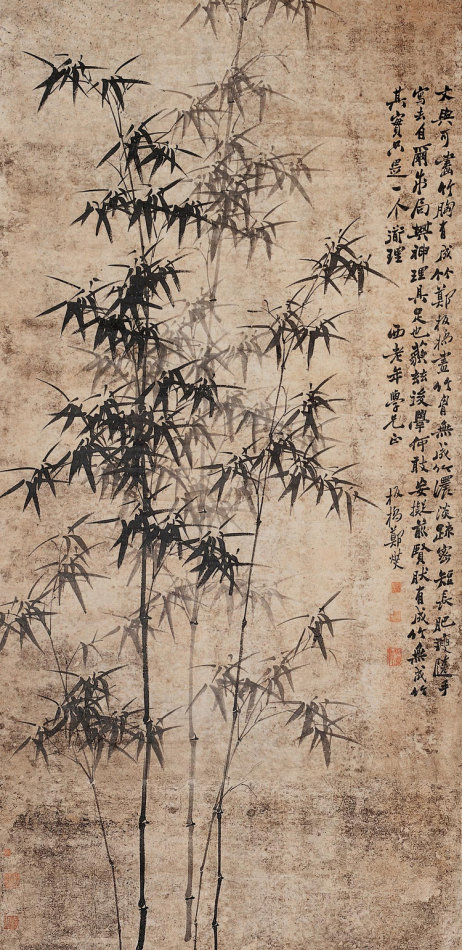 文與可畫竹胸有成竹鄭板橋畫竹胸無成竹濃淡疏密短長肥瘦隨手
寫去自爾成局其神理具足也藐茲後學何敢妄擬前賢然有成竹無成竹
其實只是一个道理
酉老年學兄正
板橋鄭燮